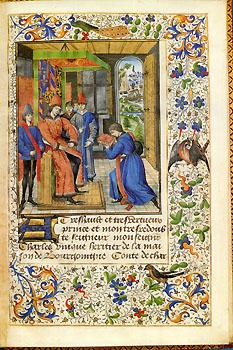 Treshault et tresvertueux
prince et mon tresredoub
te seigneur monseigneur
Charles unique heritier de la mai
son de Bourgoingne Conte de char